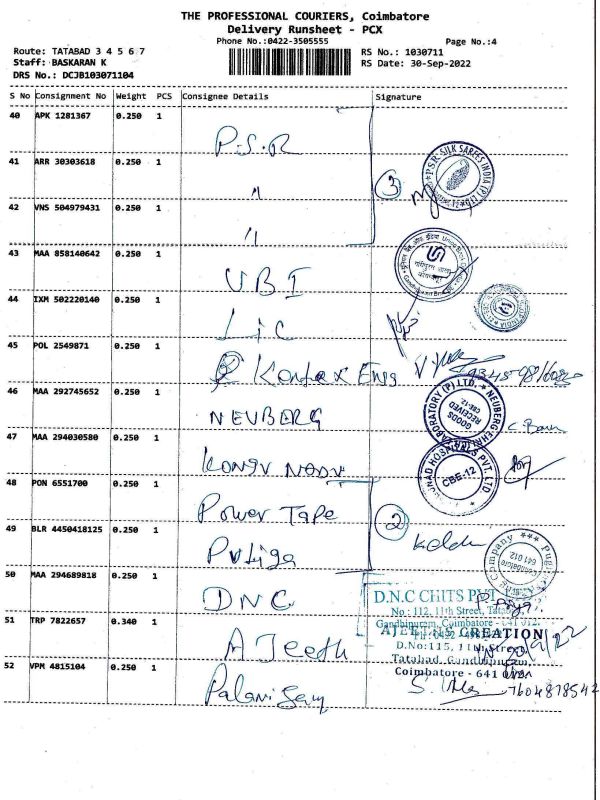 THE PROFESSIONAL COURIERS, Coimbatore
Delivery Runsheet - PCX
Phone No.:0422-3505555
Page No.:4
Route: TATABAD 3 4 5 6 7
RS No.: 1030711
Staff: BASKARAN K
RS Date: 30-Sep-2022
DRS No.: DCJB103071104
S No Consignment No Weight PCS Consignee Details Signature
40 APK 1281367 0.250 1
P.S.R
41 ARR 30303618 0.250 1
"
3
PSR SILK SAREES INDIA (P) LTD
42 VNS 504979431 0.250 1
"
43 MAA 858140642 0.250 1
UBI
44 IXM 502220140 0.250 1
LIC
45 POL 2549871 0.250 1
Kontex Eng
46 MAA 292745652 0.250 1
NEUBERG
GOODS RECEIVED CBE-12.
47 MAA 294030580 0.250 1
KONGU NADU
CBE-12
48 PON 6551700 0.250 1
Power Tape
2
49 BLR 4450418125 0.250 1
Coimbatore 641 012
50 MAA 294689818 0.250 1
DNC
D.N.C CHITS PVT.
No.: 112, 11th Street,
Gandhipuram, Coimbatore - 641 012.
51 TRP 7822657 0.340 1
AJeeth
CREATION
D.No:115, 11th Street
Tatabad, Gandhipuram,
Coimbatore - 641 012
52 VPM 4815104 0.250 1
Palanisamy
7604878542